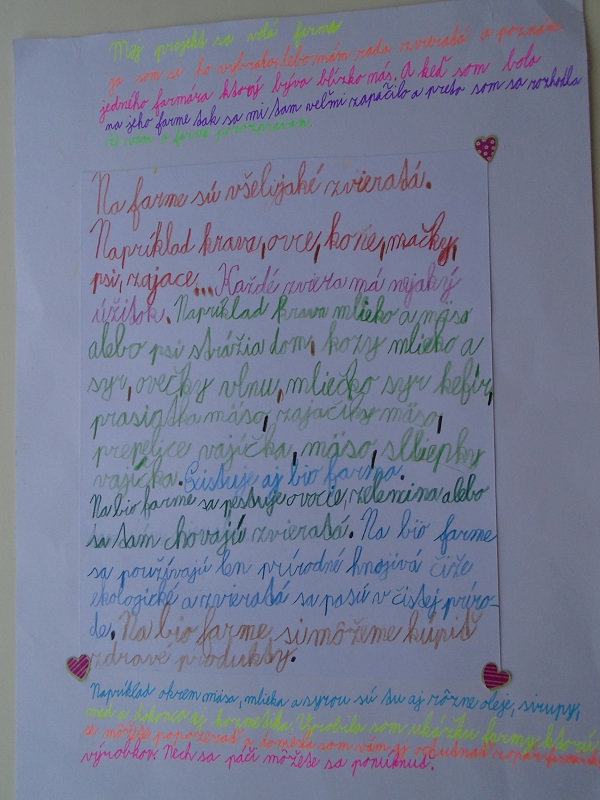 Môj projekt sa volá farma
ja som si ho vybrala lebo mám rada zvieratá a poznám
jedného farmára ktorý býva blízko nás. A keď som bola
na jeho farme tak sa mi tam veľmi zapáčilo a preto som sa rozhodla
že vám o farme porozprávam.
Na farme sú všelijaké zvieratá.
Napríklad krava, ovce, kone, mačky,
psi, zajace... Každé zviera má nejaký
úžitok. Napríklad krava mlieko a mäso
alebo psi strážia dom, kozy mlieko a
syr, ovečky vlnu, mliečko syr kefír,
prasiatka mäso, zajačiky mäso,
prepelice vajíčka, mäso, sliepky
vajíčka. Existuje aj bio farma.
Na bio farme sa pestuje ovocie, zelenina alebo
sa tam chovajú zvieratá. Na bio farme
sa používajú len prírodné hnojivá čiže
ekologické a zvieratá sa pasú v čistej príro-
de. Na bio farme si môžeme kúpiť
zdravé produkty.
Napríklad okrem mäsa, mlieka a syrou sú tu aj rôzne oleje, sirupy,
med a dokonca aj kozmetika. Vyrobila som ukážku farmy ktorú
si môžete popozerať a doniesla som vám aj ochutnať zopár farmárskych
výrobkov. Nech sa páči môžete sa ponúknuť.